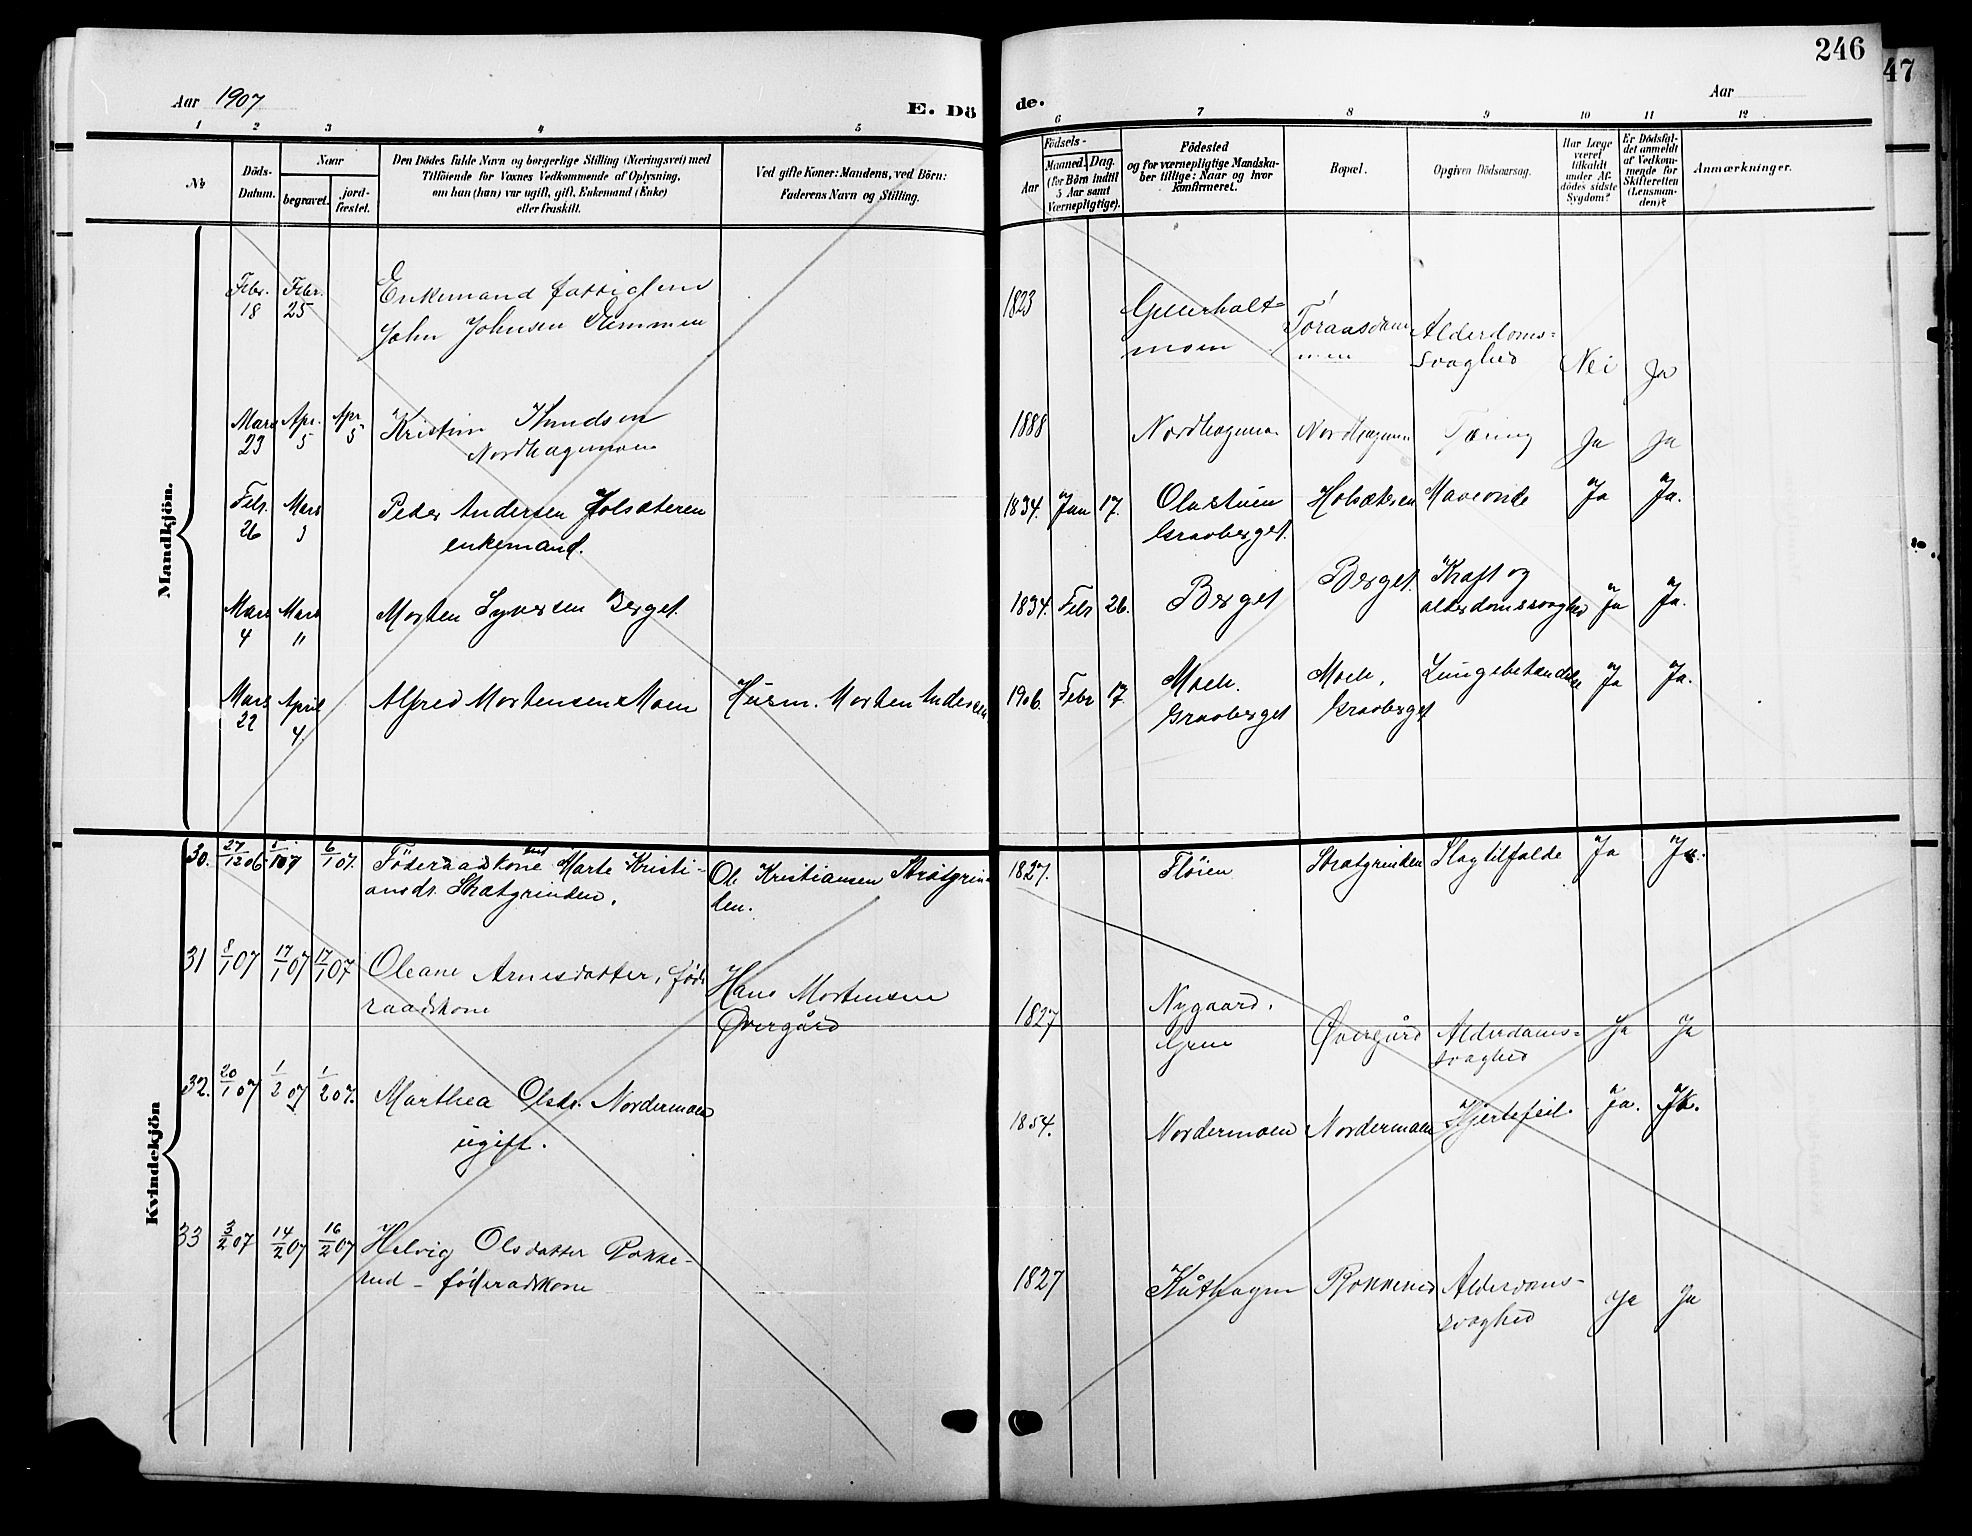 246
47
Aar 1907
E. Dö
de.
Aar
1 2 3 4 5
6 7 8 9 10 11 12
No
Döds-
Datum.
Naar
begravet.
jord-
fæstet.
Den Dödes fulde Navn og borgerlige Stilling (Næringsvei) med
Tilföiende for Voxnes Vedkommende af Oplysning,
om han (hun) var ugift, gift, Enkemand (Enke)
eller fraskilt.
Ved gifte Koner: Mandens, ved Börn:
Faderens Navn og Stilling.
Födsels-
Aar
Maaned. Dag.
(for Börn indtil
5 Aar samt
Værnepligtige).
Födested
og for værnepligtige Mandska-
ber tillige: Naar og hvor
konfirmeret.
Bopæl.
Opgiven Dödsaarsag.
Har Læge
været
tilkaldt
under Af-
dödes sidste
Sygdom?
Er Dödsfal-
det anmeldt
af Vedkom-
mende for
Skifteretten
(Lensman-
den)?
Anmærkninger.
Mandkjön.
Febr. 18 Febr. 25 Enkemand
John Johnsen 1823
moen
Alderdoms-
svaghed Nei Ja
Mars 23 Apr. 5 Apr 5 Kristian Knudsen
Nordhagamoen 1888 Tæring Ja Ja
Febr. 26 Mars 3 Peder Andersen Holsæteren
enkemand. 1834. Jan 17. Olastuen
Graaberget. Holsæteren Maveonde Ja Ja.
Mars 4 Mars 11 Morten Syversen Berget. 1834. Febr 26. Berget Berget. Kraft og
alderdomssvaghed Ja Ja.
Mars 22 April 4. Alfred Mortensen Moen Husm. Morten Andersen 1906. Febr 17. Moen.
Graaberget Moen,
Graaberget Lungebetændelse Ja Ja.
Kvindekjön
30. 27/12 06 5/1 07 6/1 07. Föderaadskone Marte Kristi-
ansdt. Stratgrinden. Ole Kristiansen Stratgrin-
den. 1827. Fløien Stratgrinden Slagtilfælde Ja Ja.
31 8/1 07 17/1 07 17/1 07 Oleane Arnesdatter,føde-
raadskone Hans Mortensen
Øvergård 1827 Nygaard.
Grue Øvergård Alderdoms-
svaghed Ja Ja
32. 20/1 07 1/2 07 1/2 07. Marthea Olsdr. Nordermoen
ugift. 1854. Nordermoen Nordermoen Hjertefeil. Ja. Ja.
33 3/2 07 14/2 07 16/2 07 Helvig Olsdatter Rokke-
rud - føderadskone 1827 Rokkerud Alderdoms-
svaghed Ja Ja